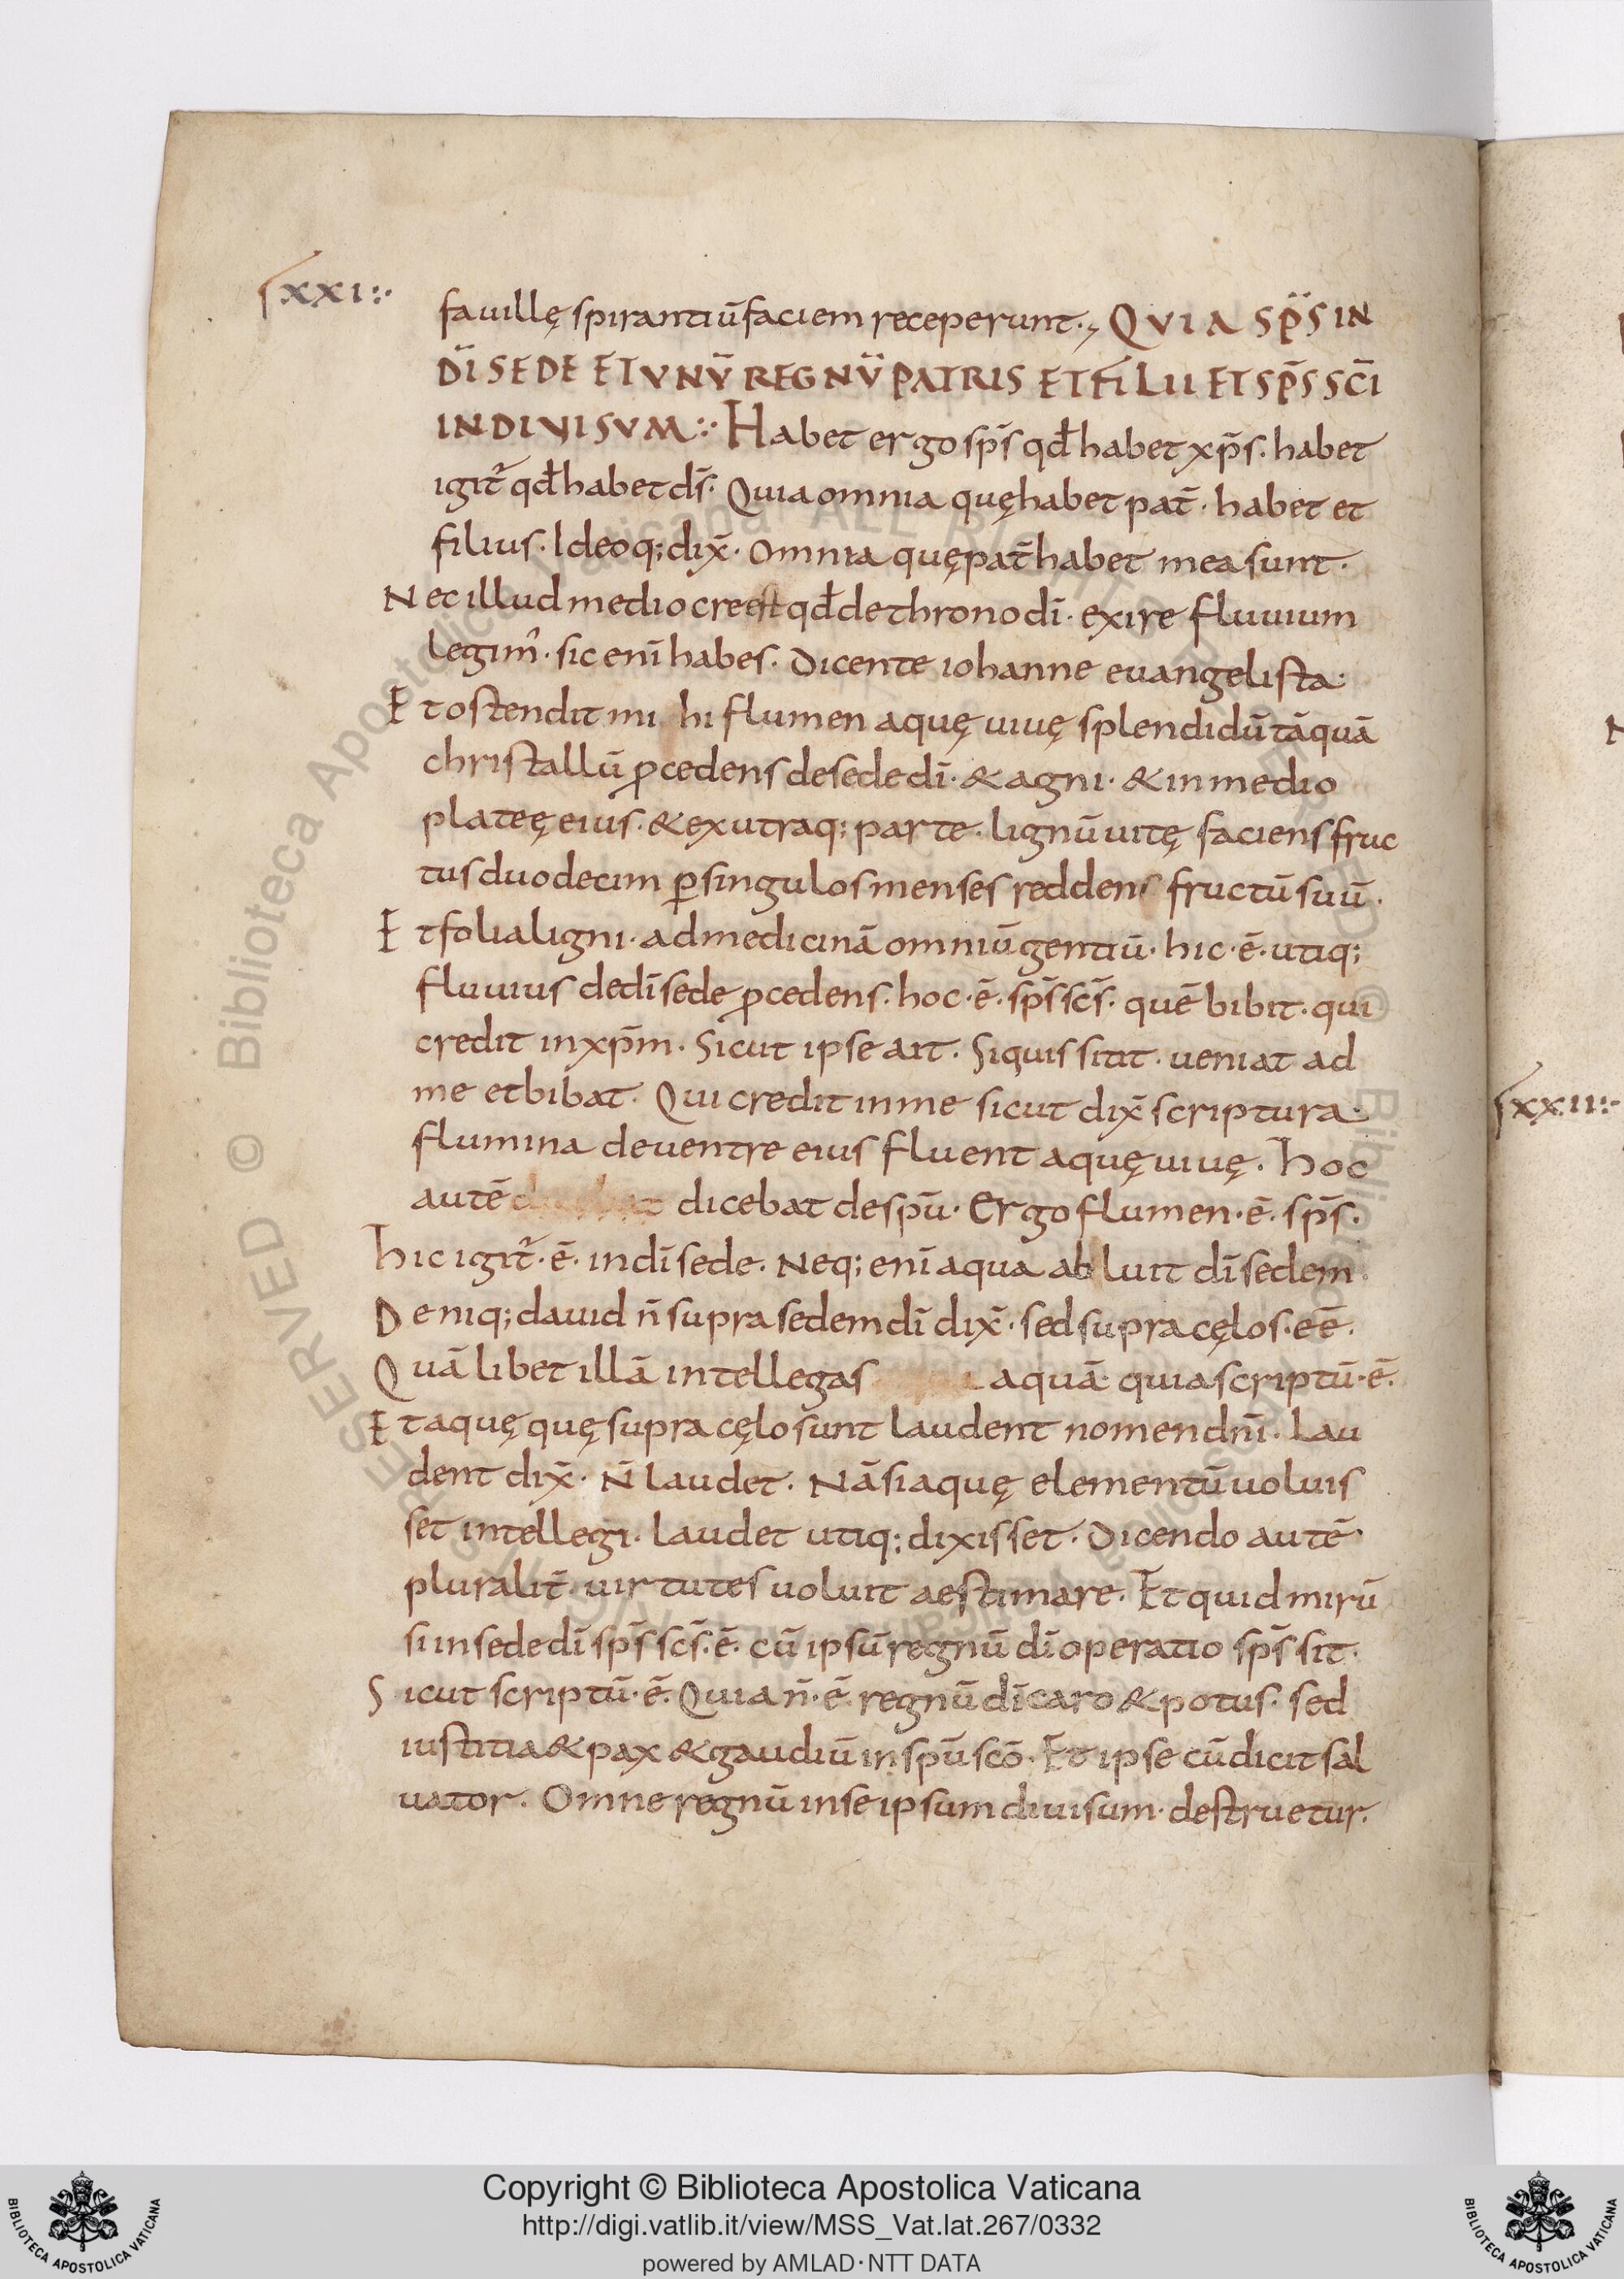 xxi
fauillę spirantiū faciem receperunt., QVIA SP̄S IN
DI SEDE ET VNV̄ REGNV̄ PATRIS ET FILII ET SP̄S SC̄I
INDIVISVM:· Habet ergo sp̄s qđ habet xp̄s. habet
igit̄ qđ habet ds̄. Quia omnia quę habet pat̄. habet et
filius. Ideoq; dix̄. Omnia quę pat̄ habet mea sunt.
Nec illud mediocre est qđ de throno dī. exire fluuium
legim᾽. sic enī habes. Dicente iohanne euangelista.
Et ostendit mihi flumen aquę uiuę splendidū tāquā
christallū ꝓcedens de sede dī. & agni. & in medio
plateę eius. & ex utraq; parte. lignū uitę faciens fruc
tus duodecim ꝑ singulos menses reddens fructū suū.
Et folia ligni. ad medicinā omniū gentiū. hic.ē.utiq;
fluuius de dī sede ꝓcedens. hoc.ē. sp̄s sc̄s. quē bibit. qui
credit in xp̄m. Sicut ipse ait. Siquis sitit. ueniat ad
me et bibat. Qui credit in me sicut dix̄ scriptura.
flumina de uentre eius fluent aquę uiuę. Hoc
autē dicebat de spū. Ergo flumen.ē. sp̄s.
Hic igit̄.ē. in dī sede. Neq; enī aqua abluit dī sedem.
Deniq; dauid n̄ supra sedem dī dix̄. sed supra cęlos.eē.
Quālibet illā intellegas aquā. quia scriptū.ē.
Et aquę quę supra cęlo sunt laudent nomen dn̄i. Lau
dent dix̄. N̄ laudet. Nā si aquę elementū uoluis
set intellegi. laudet utiq; dixisset. Dicendo autē
pluralit̄. uirtutes uoluit aestimare. Et quid mirū
si in sede dī sp̄s sc̄s.ē. cū ipsū regnū dī operatio sp̄s sit.
Sicut scriptū.ē. Quia n̄.ē. regnū dī caro & potus. sed
iustitia & pax & gaudiū in spū scō. Et ipse cū dicit sal
uator. Omne regnū in se ipsum diuisum. destruetur.
xxii
Copyright © Biblioteca Apostolica Vaticana
http://digi.vatlib.it/view/MSS_Vat.lat.267/0332
powered by AMLAD·NTT DATA
BIBLIOTECA APOSTOLICA VATICANA
BIBLIOTECA APOSTOLICA VATICANA